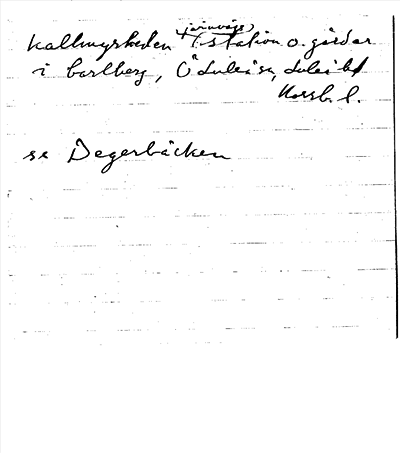 Kallmyrheden järnvägsstation o. gårdar
i Carlberg, Ö Luleå sn, Luleå
Norrb. l.
se Degerbäcken